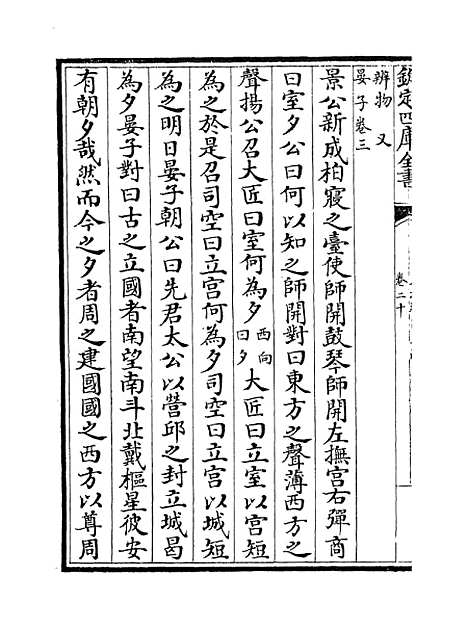 欽定四庫全書
卷二十
辨物　又
晏子卷三
景公新成柏寢之臺使師開鼓琴師開左撫宮右彈商
曰室夕公曰何以知之師開對曰東方之聲薄西方之
聲揚公召大匠曰室何為夕西向曰夕大匠曰立室以宮矩
為之於是召司空曰立宮何為夕司空曰立宮以城矩
為之明日晏子朝公曰先君太公以營邱之封立城曷
為夕晏子對曰古之立國者南望南斗北戴樞星彼安
有朝夕哉然而今之夕者周之建國國之西方以尊周